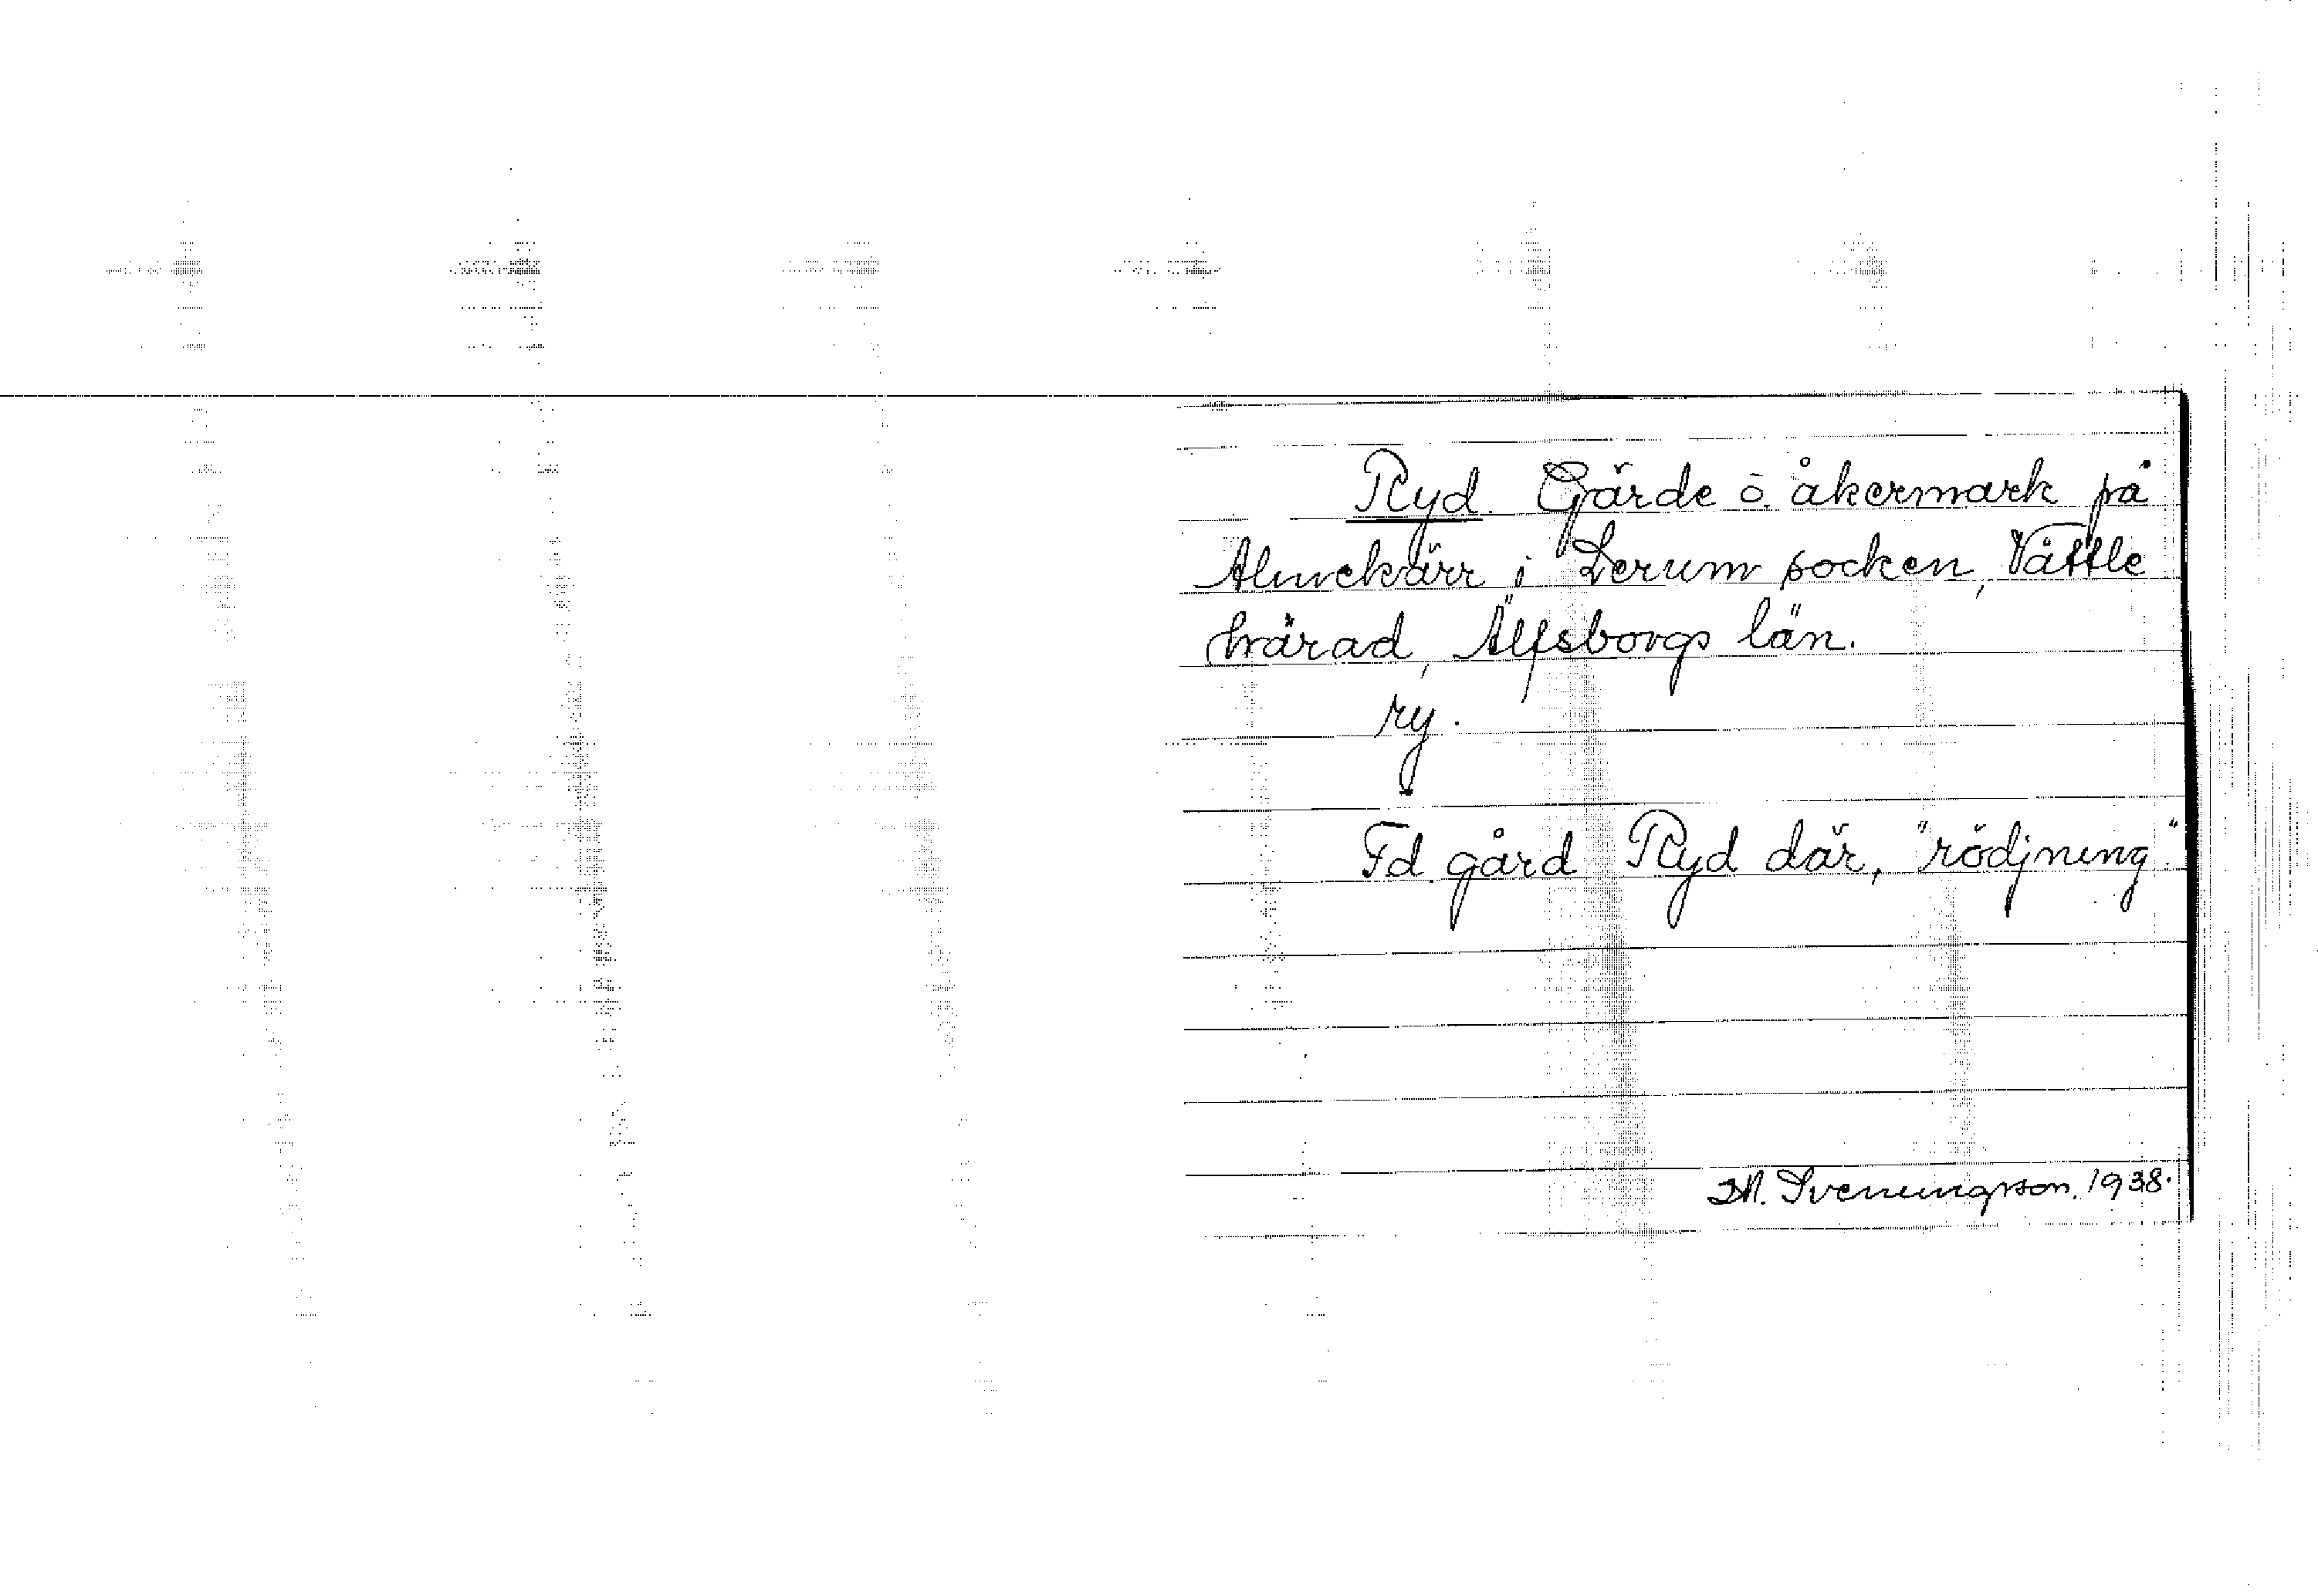 Ryd. Gärde o. åkermark på
Almekärr i Lerum socken, Vättle
härad, Älfsborgs län.
ry.
Fd. gård Ryd där, "rödjning."
M. Sveningson. 1938.